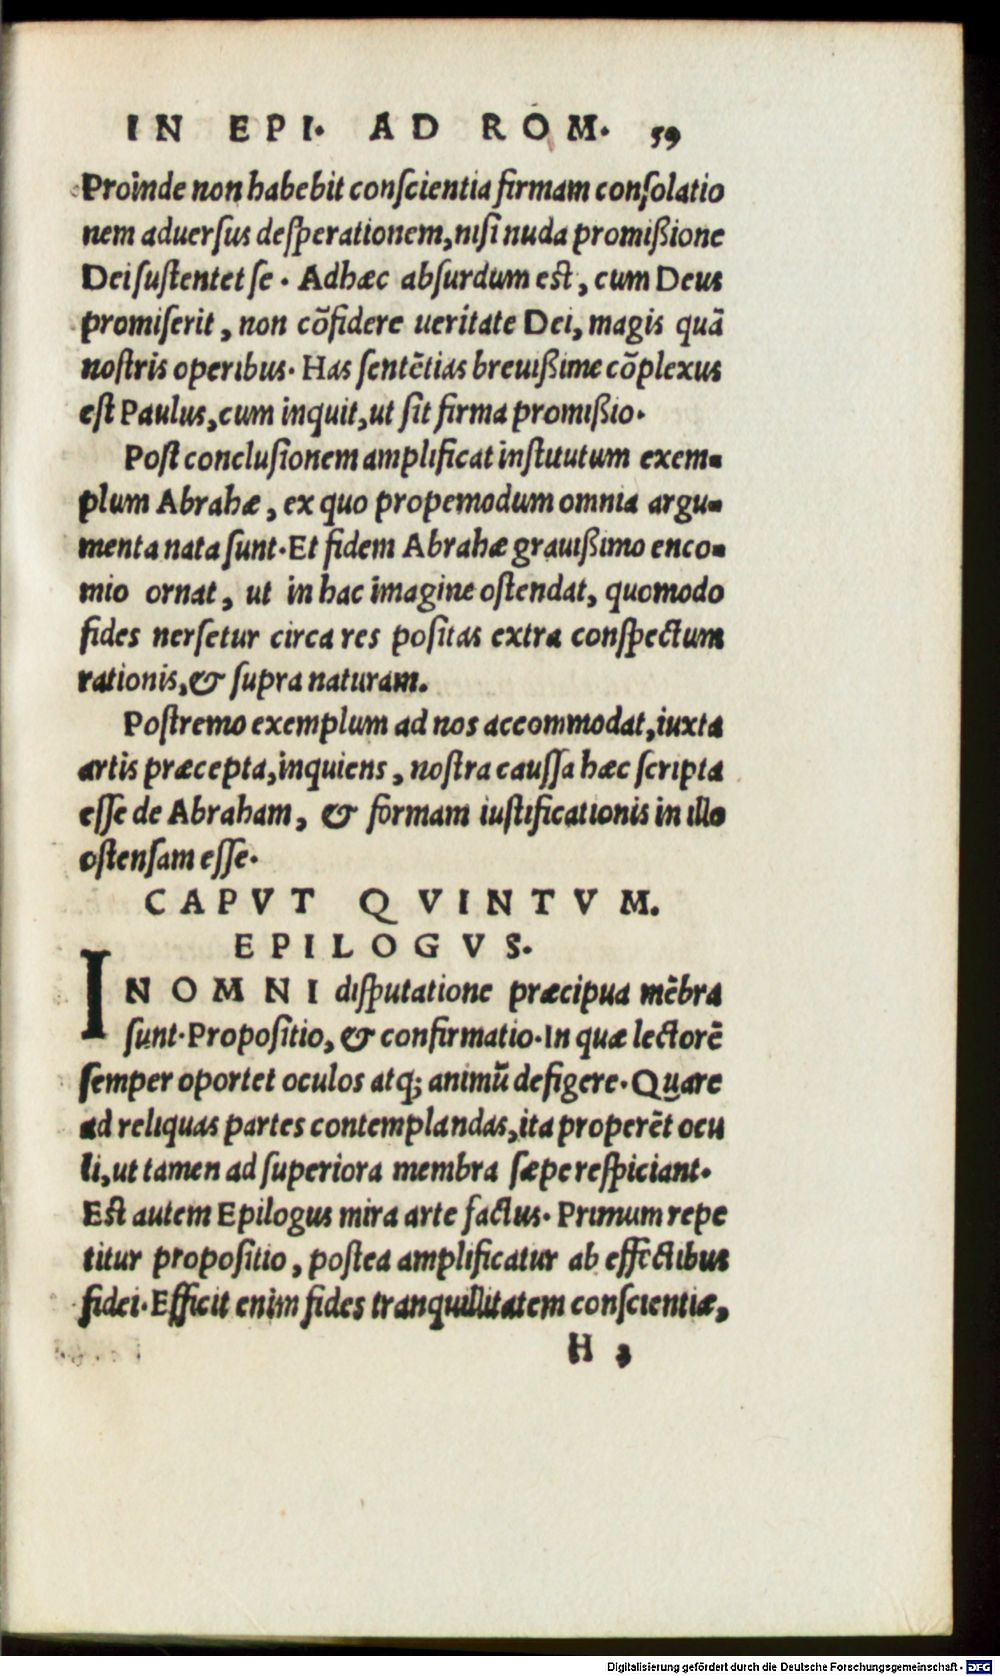 IN EPI. AD ROM. 59
Proinde non habebit conſcientia firmam conſolatio
nem aduerſus deſperationem, niſi nuda promißione
Dei ſuſtentet ſe. Adhæc abſurdum eſt, cum Deus
promiſerit, non cõfidere ueritate Dei, magis quã
noſtris operibus. Has ſentẽtias breuißime cõplexus
eſt Paulus, cum inquit, ut ſit firma promißio.
Poſt concluſionem amplificat inſtitutum exem-
plum Abrahæ, ex quo propemodum omnia argu-
menta nata ſunt. Et fidem Abrahæ grauißimo enco-
mio ornat, ut in hac imagine oſtendat, quomodo
fides nerſetur circa res poſitas extra conſpectum
rationis, & ſupra naturam.
Poſtremo exemplum ad nos accommodat, iuxta
artis præcepta, inquiens, noſtra cauſſa hæc ſcripta
eſſe de Abraham, & formam iuſtificationis in illo
oſtenſam eſſe.
CAPVT QVINTVM.
EPILOGVS.
IN OMNI diſputatione præcipua mẽbra
ſunt. Propoſitio, & confirmatio. In quæ lectorẽ
ſemper oportet oculos atq; animũ defigere. Quare
ad reliquas partes contemplandas, ita properẽt ocu
li, ut tamen ad ſuperiora membra ſæpe reſpiciant.
Eſt autem Epilogus mira arte factus. Primum repe
titur propoſitio, poſtea amplificatur ab effectibus
fidei. Efficit enim fides tranquillitatem conſcientiæ,
H 3
Digitalisierung gefördert durch die Deutsche Forschungsgemeinschaft - DFG